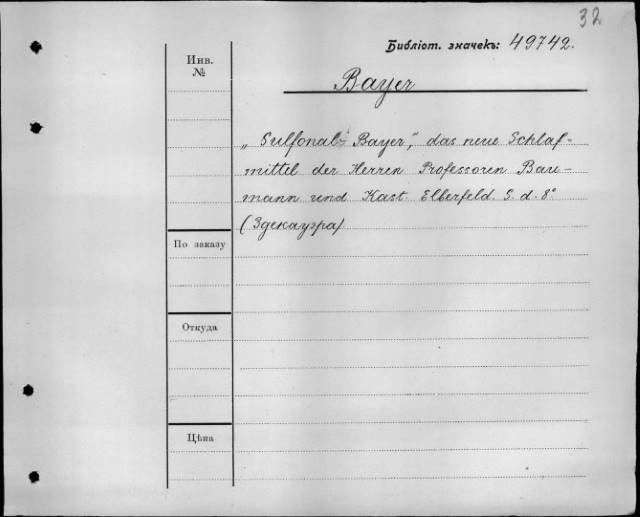 32
Библіот. значекъ: 49742.
Инв.
№
Bayer
„Sulfonal-Bayer", das neue Schlaf-
mittel der Herren Professoren Bau-
mann und Kast. Elberfeld. S. d. 8°
(Здекауэра)
По заказу
Откуда
Цѣна